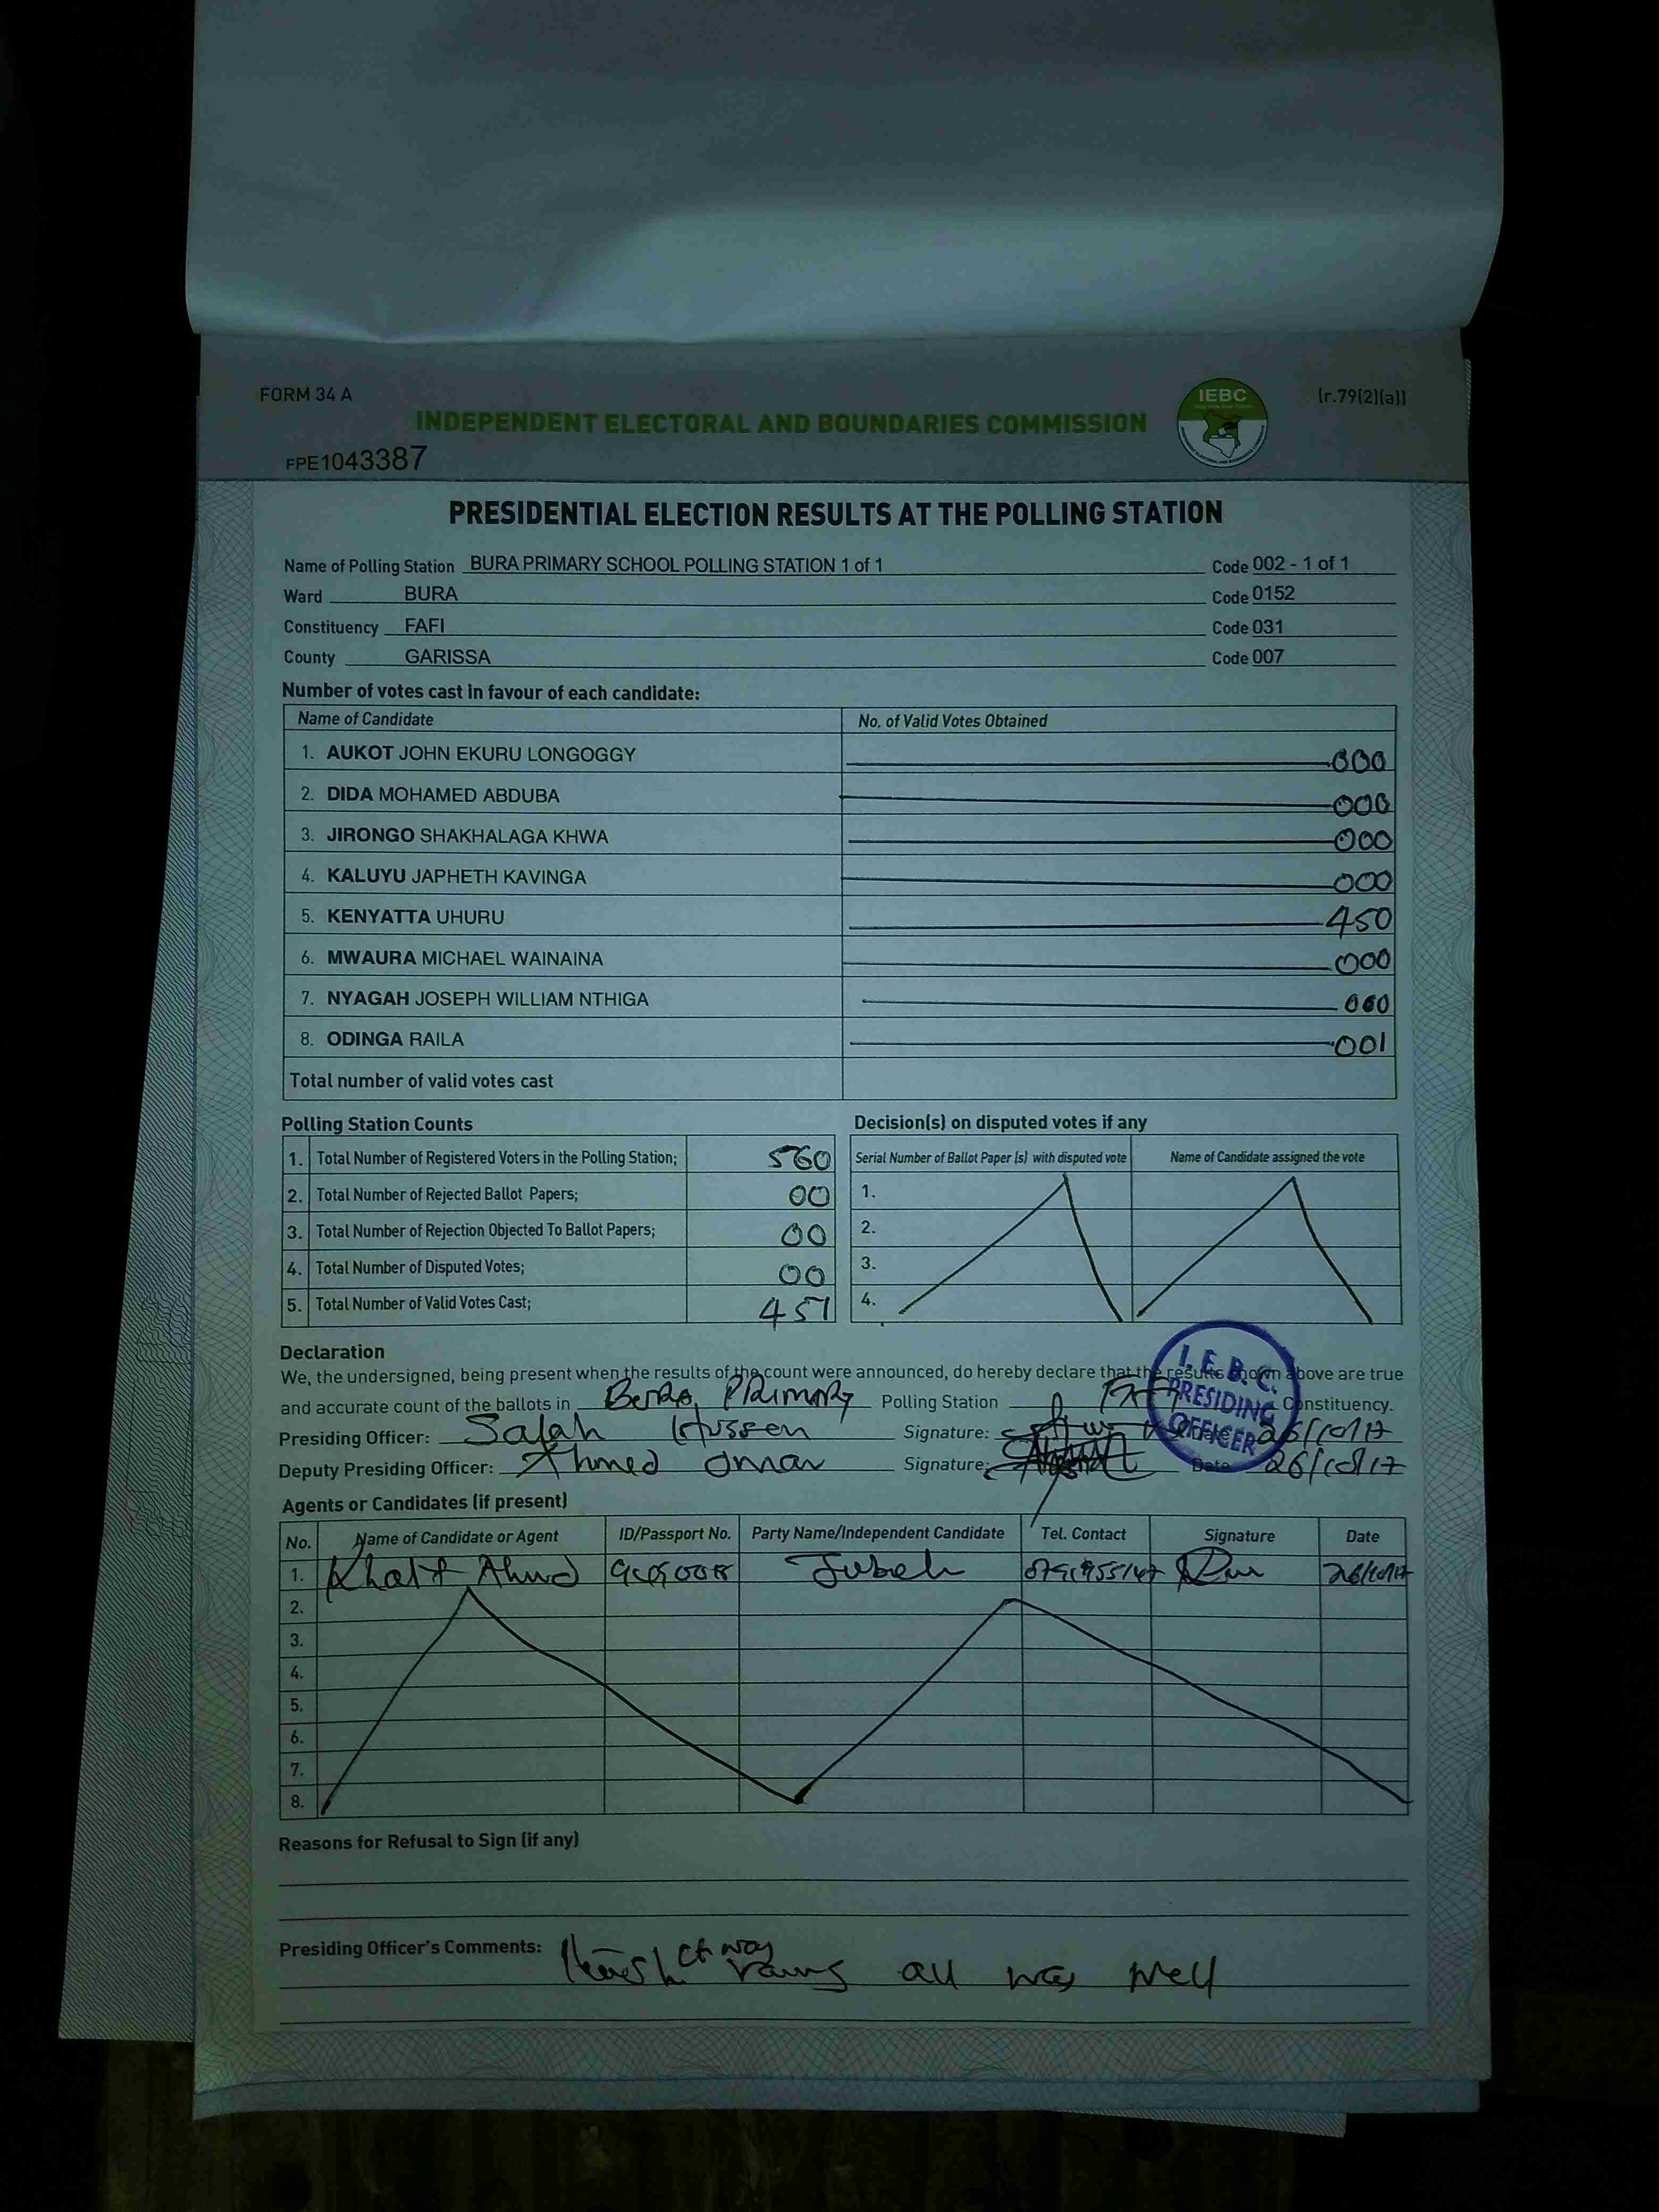 FORM 34 A
IEBC
(r.79(2)(a))
INDEPENDENT ELECTORAL AND BOUNDARIES COMMISSION
FPE1043387
PRESIDENTIAL ELECTION RESULTS AT THE POLLING STATION
Name of Polling Station BURA PRIMARY SCHOOL POLLING STATION 1 of 1 Code 002 - 1 of 1
Ward BURA Code 0152
Constituency FAFI Code 031
County GARISSA Code 007
Number of votes cast in favour of each candidate:
Name of Candidate No. of Valid Votes Obtained
1. AUKOT JOHN EKURU LONGOGGY 000
2. DIDA MOHAMED ABDUBA 000
3. JIRONGO SHAKHALAGA KHWA 000
4. KALUYU JAPHETH KAVINGA 000
5. KENYATTA UHURU 450
6. MWAURA MICHAEL WAINAINA 000
7. NYAGAH JOSEPH WILLIAM NTHIGA 000
8. ODINGA RAILA 001
Total number of valid votes cast
Polling Station Counts
1. Total Number of Registered Voters in the Polling Station; 560
2. Total Number of Rejected Ballot Papers; 00
3. Total Number of Rejection Objected To Ballot Papers; 00
4. Total Number of Disputed Votes; 00
5. Total Number of Valid Votes Cast; 451
Decision(s) on disputed votes if any
Serial Number of Ballot Paper (s) with disputed vote Name of Candidate assigned the vote
1.
2.
3.
4.
Declaration
We, the undersigned, being present when the results of the count were announced, do hereby declare that the results shown above are true
and accurate count of the ballots in Bura Primary Polling Station Constituency.
Presiding Officer: Salah Hussen Signature: 26/10/17
Deputy Presiding Officer: Ahmed Omar Signature: Date 26/10/17
I.E.B.C.
PRESIDING
OFFICER
Agents or Candidates (if present)
No. Name of Candidate or Agent ID/Passport No. Party Name/Independent Candidate Tel. Contact Signature Date
1. Jubele 26/10/17
2.
3.
4.
5.
6.
7.
8.
Reasons for Refusal to Sign (if any)
Presiding Officer's Comments: all was well